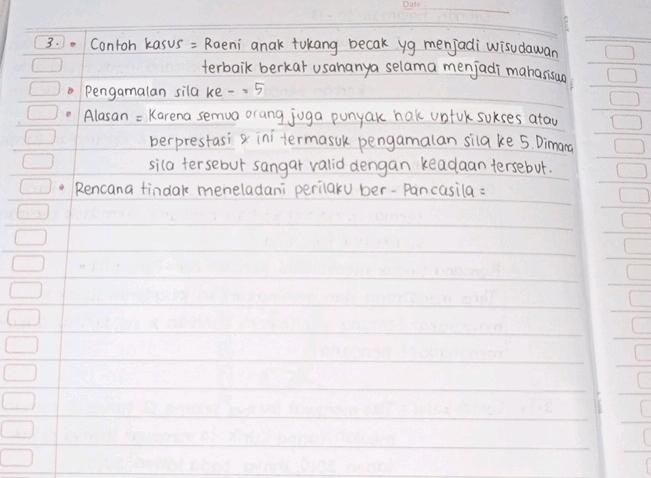 Date
3. • Contoh kasus = Raeni anak tukang becak yg menjadi wisudawan
terbaik berkat usahanya selama menjadi mahasiswa
• Pengamalan sila ke - = 5
• Alasan = Karena semua orang juga punyak hak untuk sukses atau
berprestasi & ini termasuk pengamalan sila ke 5. Dimana
sila tersebut sangat valid dengan keadaan tersebut.
• Rencana tindak meneladani perilaku ber - Pancasila =